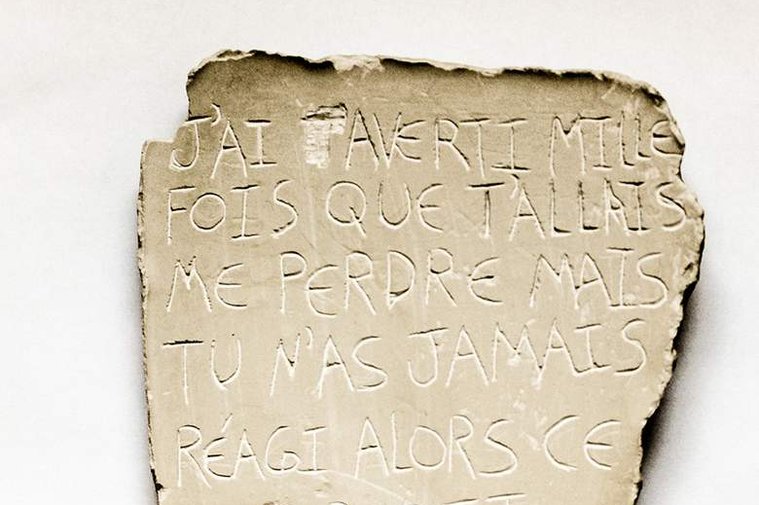 J'AI T'AVERTI MILLE
FOIS QUE T'ALLAIS
ME PERDRE MAIS
TU N'AS JAMAIS
RÉAGI ALORS CE